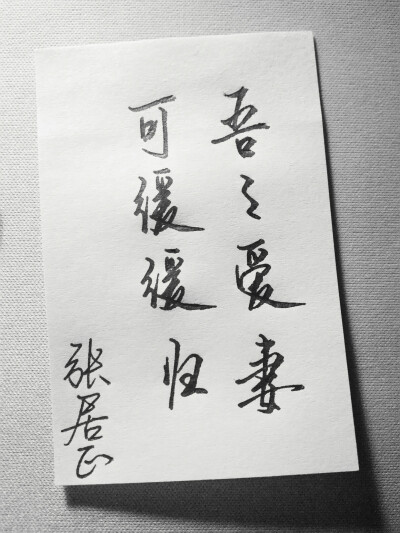 吾之爱妻
可缓缓归
张居正